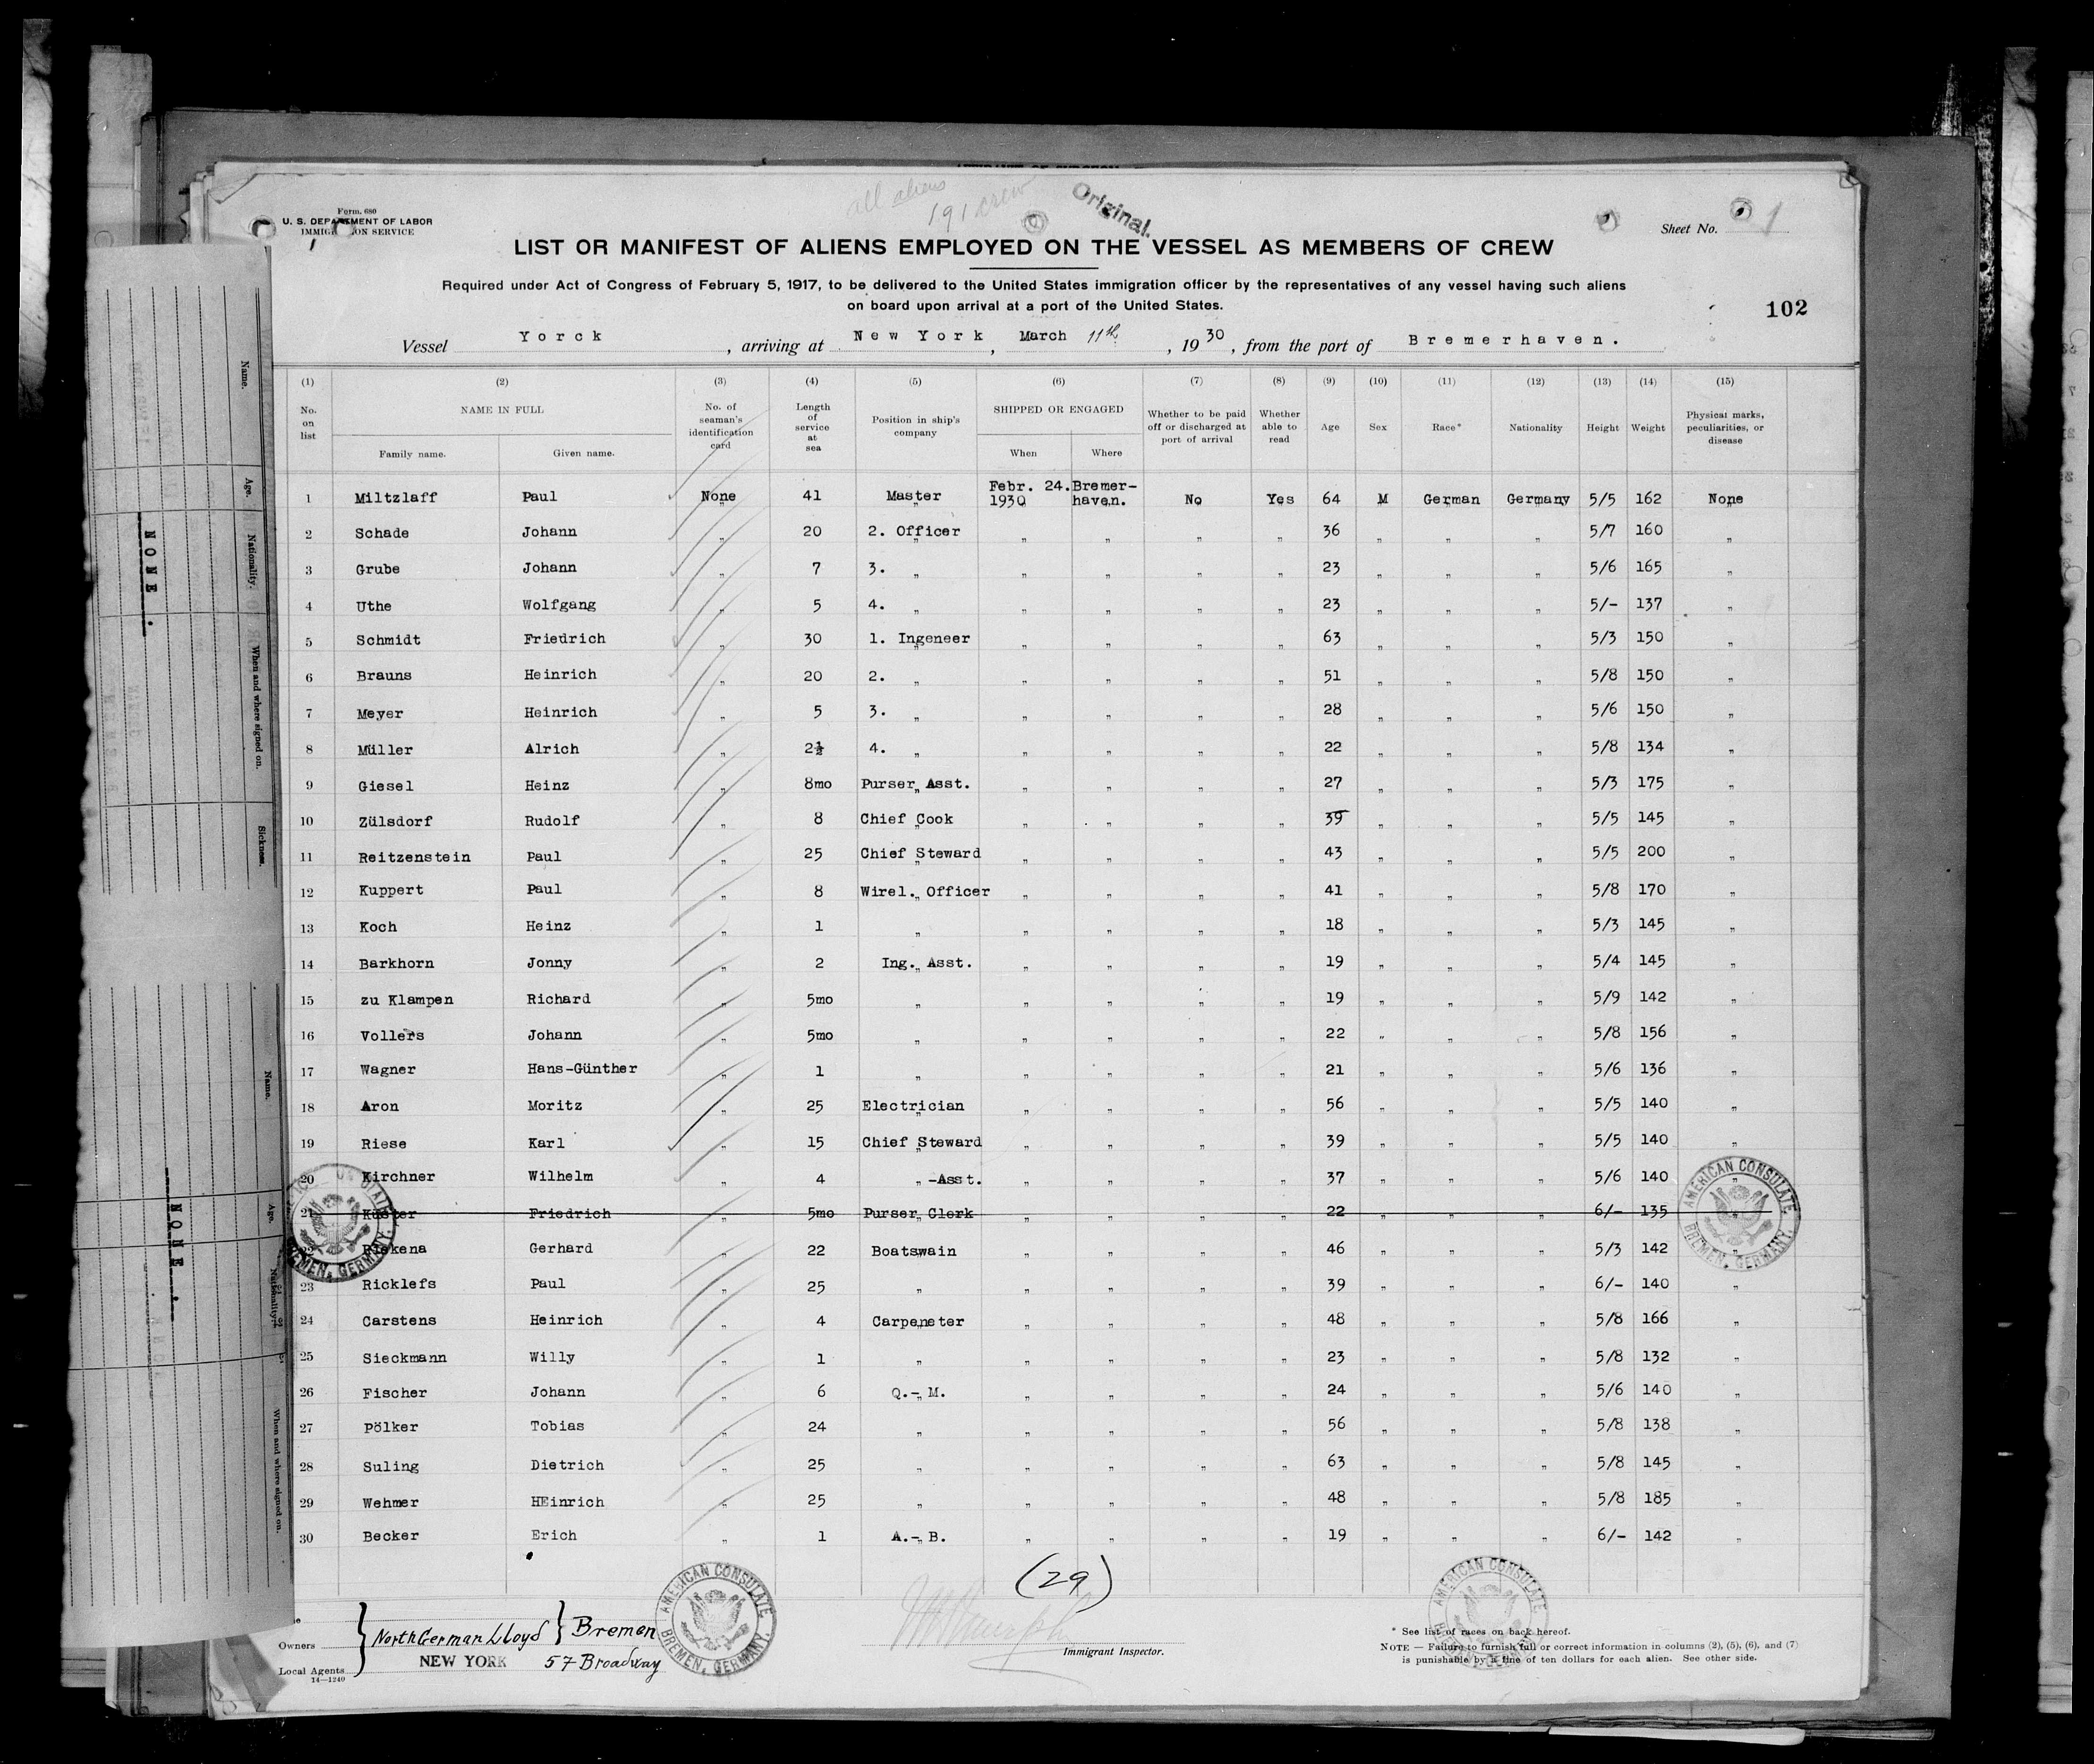 all aliens
191 crew
Original.
Form. 680
U. S. DEPARTMENT OF LABOR
IMMIGRATION SERVICE
Sheet No. 1
LIST OR MANIFEST OF ALIENS EMPLOYED ON THE VESSEL AS MEMBERS OF CREW
Required under Act of Congress of February 5, 1917, to be delivered to the United States immigration officer by the representatives of any vessel having such aliens
on board upon arrival at a port of the United States.
102
Vessel Yorck, arriving at New York, March 11th, 1930, from the port of Bremerhaven.
(1) (2) (3) (4) (5) (6) (7) (8) (9) (10) (11) (12) (13) (14) (15)
No. on list NAME IN FULL Family name. Given name. No. of seaman's identification card Length of service at sea Position in ship's company SHIPPED OR ENGAGED When Where Whether to be paid off or discharged at port of arrival Whether able to read Age Sex Race* Nationality Height Weight Physical marks, peculiarities, or disease
1 Miltzlaff Paul None 41 Master Febr. 24. 1930 Bremerhaven. No Yes 64 M German Germany 5/5 162 None
2 Schade Johann " 20 2. Officer " " " " 36 " " " 5/7 160 "
3 Grube Johann " 7 3. " " " " " 23 " " " 5/6 165 "
4 Uthe Wolfgang " 5 4. " " " " " 23 " " " 5/- 137 "
5 Schmidt Friedrich " 30 1. Ingeneer " " " " 63 " " " 5/3 150 "
6 Brauns Heinrich " 20 2. " " " " " 51 " " " 5/8 150 "
7 Meyer Heinrich " 5 3. " " " " " 28 " " " 5/6 150 "
8 Müller Alrich " 2½ 4. " " " " " 22 " " " 5/8 134 "
9 Giesel Heinz " 8mo Purser Asst. " " " " 27 " " " 5/3 175 "
10 Zülsdorf Rudolf " 8 Chief Cook " " " " 39 " " " 5/5 145 "
11 Reitzenstein Paul " 25 Chief Steward " " " " 43 " " " 5/5 200 "
12 Kuppert Paul " 8 Wirel. Officer " " " " 41 " " " 5/8 170 "
13 Koch Heinz " 1 " " " " " 18 " " " 5/3 145 "
14 Barkhorn Jonny " 2 Ing. Asst. " " " " 19 " " " 5/4 145 "
15 zu Klampen Richard " 5mo " " " " " 19 " " " 5/9 142 "
16 Vollers Johann " 5mo " " " " " 22 " " " 5/8 156 "
17 Wagner Hans-Günther " 1 " " " " " 21 " " " 5/6 136 "
18 Aron Moritz " 25 Electrician " " " " 56 " " " 5/5 140 "
19 Riese Karl " 15 Chief Steward " " " " 39 " " " 5/5 140 "
20 Kirchner Wilhelm " 4 " -Asst. " " " " 37 " " " 5/6 140 "
21 Küster Friedrich " 5mo Purser Clerk " " " " 22 " " " 6/- 135 "
22 Gerhard " 22 Boatswain " " " " 46 " " " 5/3 142 "
23 Ricklefs Paul " 25 " " " " " 39 " " " 6/- 140 "
24 Carstens Heinrich " 4 Carpeneter " " " " 48 " " " 5/8 166 "
25 Sieckmann Willy " 1 " " " " " 23 " " " 5/8 132 "
26 Fischer Johann " 6 Q.- M. " " " " 24 " " " 5/6 140 "
27 Pölker Tobias " 24 " " " " " 56 " " " 5/8 138 "
28 Suling Dietrich " 25 " " " " " 63 " " " 5/8 145 "
29 Wehmer HEinrich " 25 " " " " " 48 " " " 5/8 185 "
30 Becker Erich " 1 A.- B. " " " " 19 " " " 6/- 142 "
AMERICAN CONSULATE
BREMEN, GERMANY.
AMERICAN CONSULATE
BREMEN, GERMANY.
(29)
AMERICAN CONSULATE
BREMEN, GERMANY.
AMERICAN CONSULATE
Owners
Local Agents
14—1240
North German Lloyd } Bremen
NEW YORK 57 Broadway
Immigrant Inspector.
* See list of races on back hereof.
NOTE — Failure to furnish full or correct information in columns (2), (5), (6), and (7)
is punishable by a fine of ten dollars for each alien. See other side.
Name.
Age.
Nationality.
When and where signed on.
Sickness.
NONE.
Name.
Age.
Nationality.
When and where signed on.
NONE.